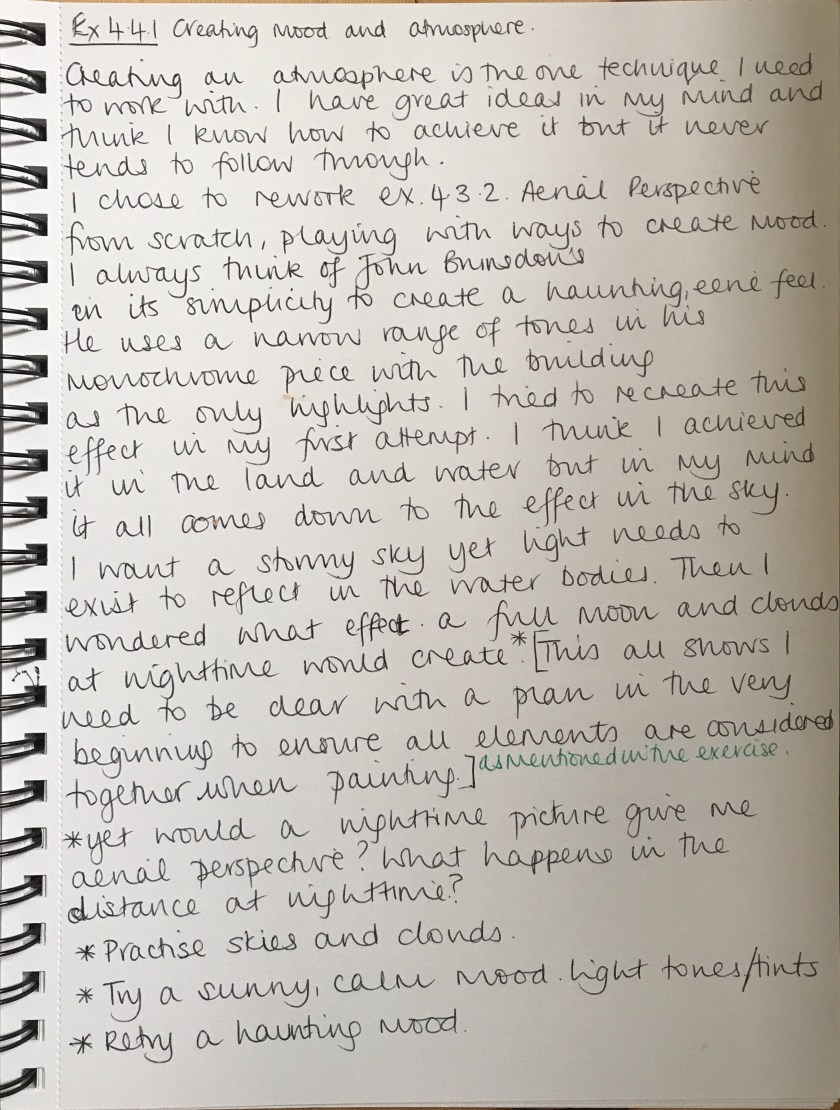 Ex 4.4.1 Creating Mood and atmosphere.
Creating an atmosphere is the one technique I need
to work with. I have great ideas in my mind and
think I know how to achieve it but it never
tends to follow through.
I chose to rework ex. 4.3.2. Aerial Perspective
from scratch, playing with ways to create mood.
I always think of John Brunsdon's
in its simplicity to create a haunting, eerie feel.
He uses a narrow range of tones in his
monochrome piece with the building
as the only highlights. I tried to recreate this
effect in my first attempt. I think I achieved
it in the land and water but in my mind
it all comes down to the effect in the sky.
I want a stormy sky yet light needs to
exist to reflect in the water bodies. Then I
wondered what effect a full moon and clouds
at nighttime would create*. [This all shows I
need to be clear with a plan in the very
beginning to ensure all elements are considered
together when painting.] as mentioned in the exercise.
*yet would a nighttime picture give me
aerial perspective? What happens in the
distance at nighttime?
* Practise skies and clouds.
* Try a sunny, calm mood. light tones/tints
* Retry a haunting mood.